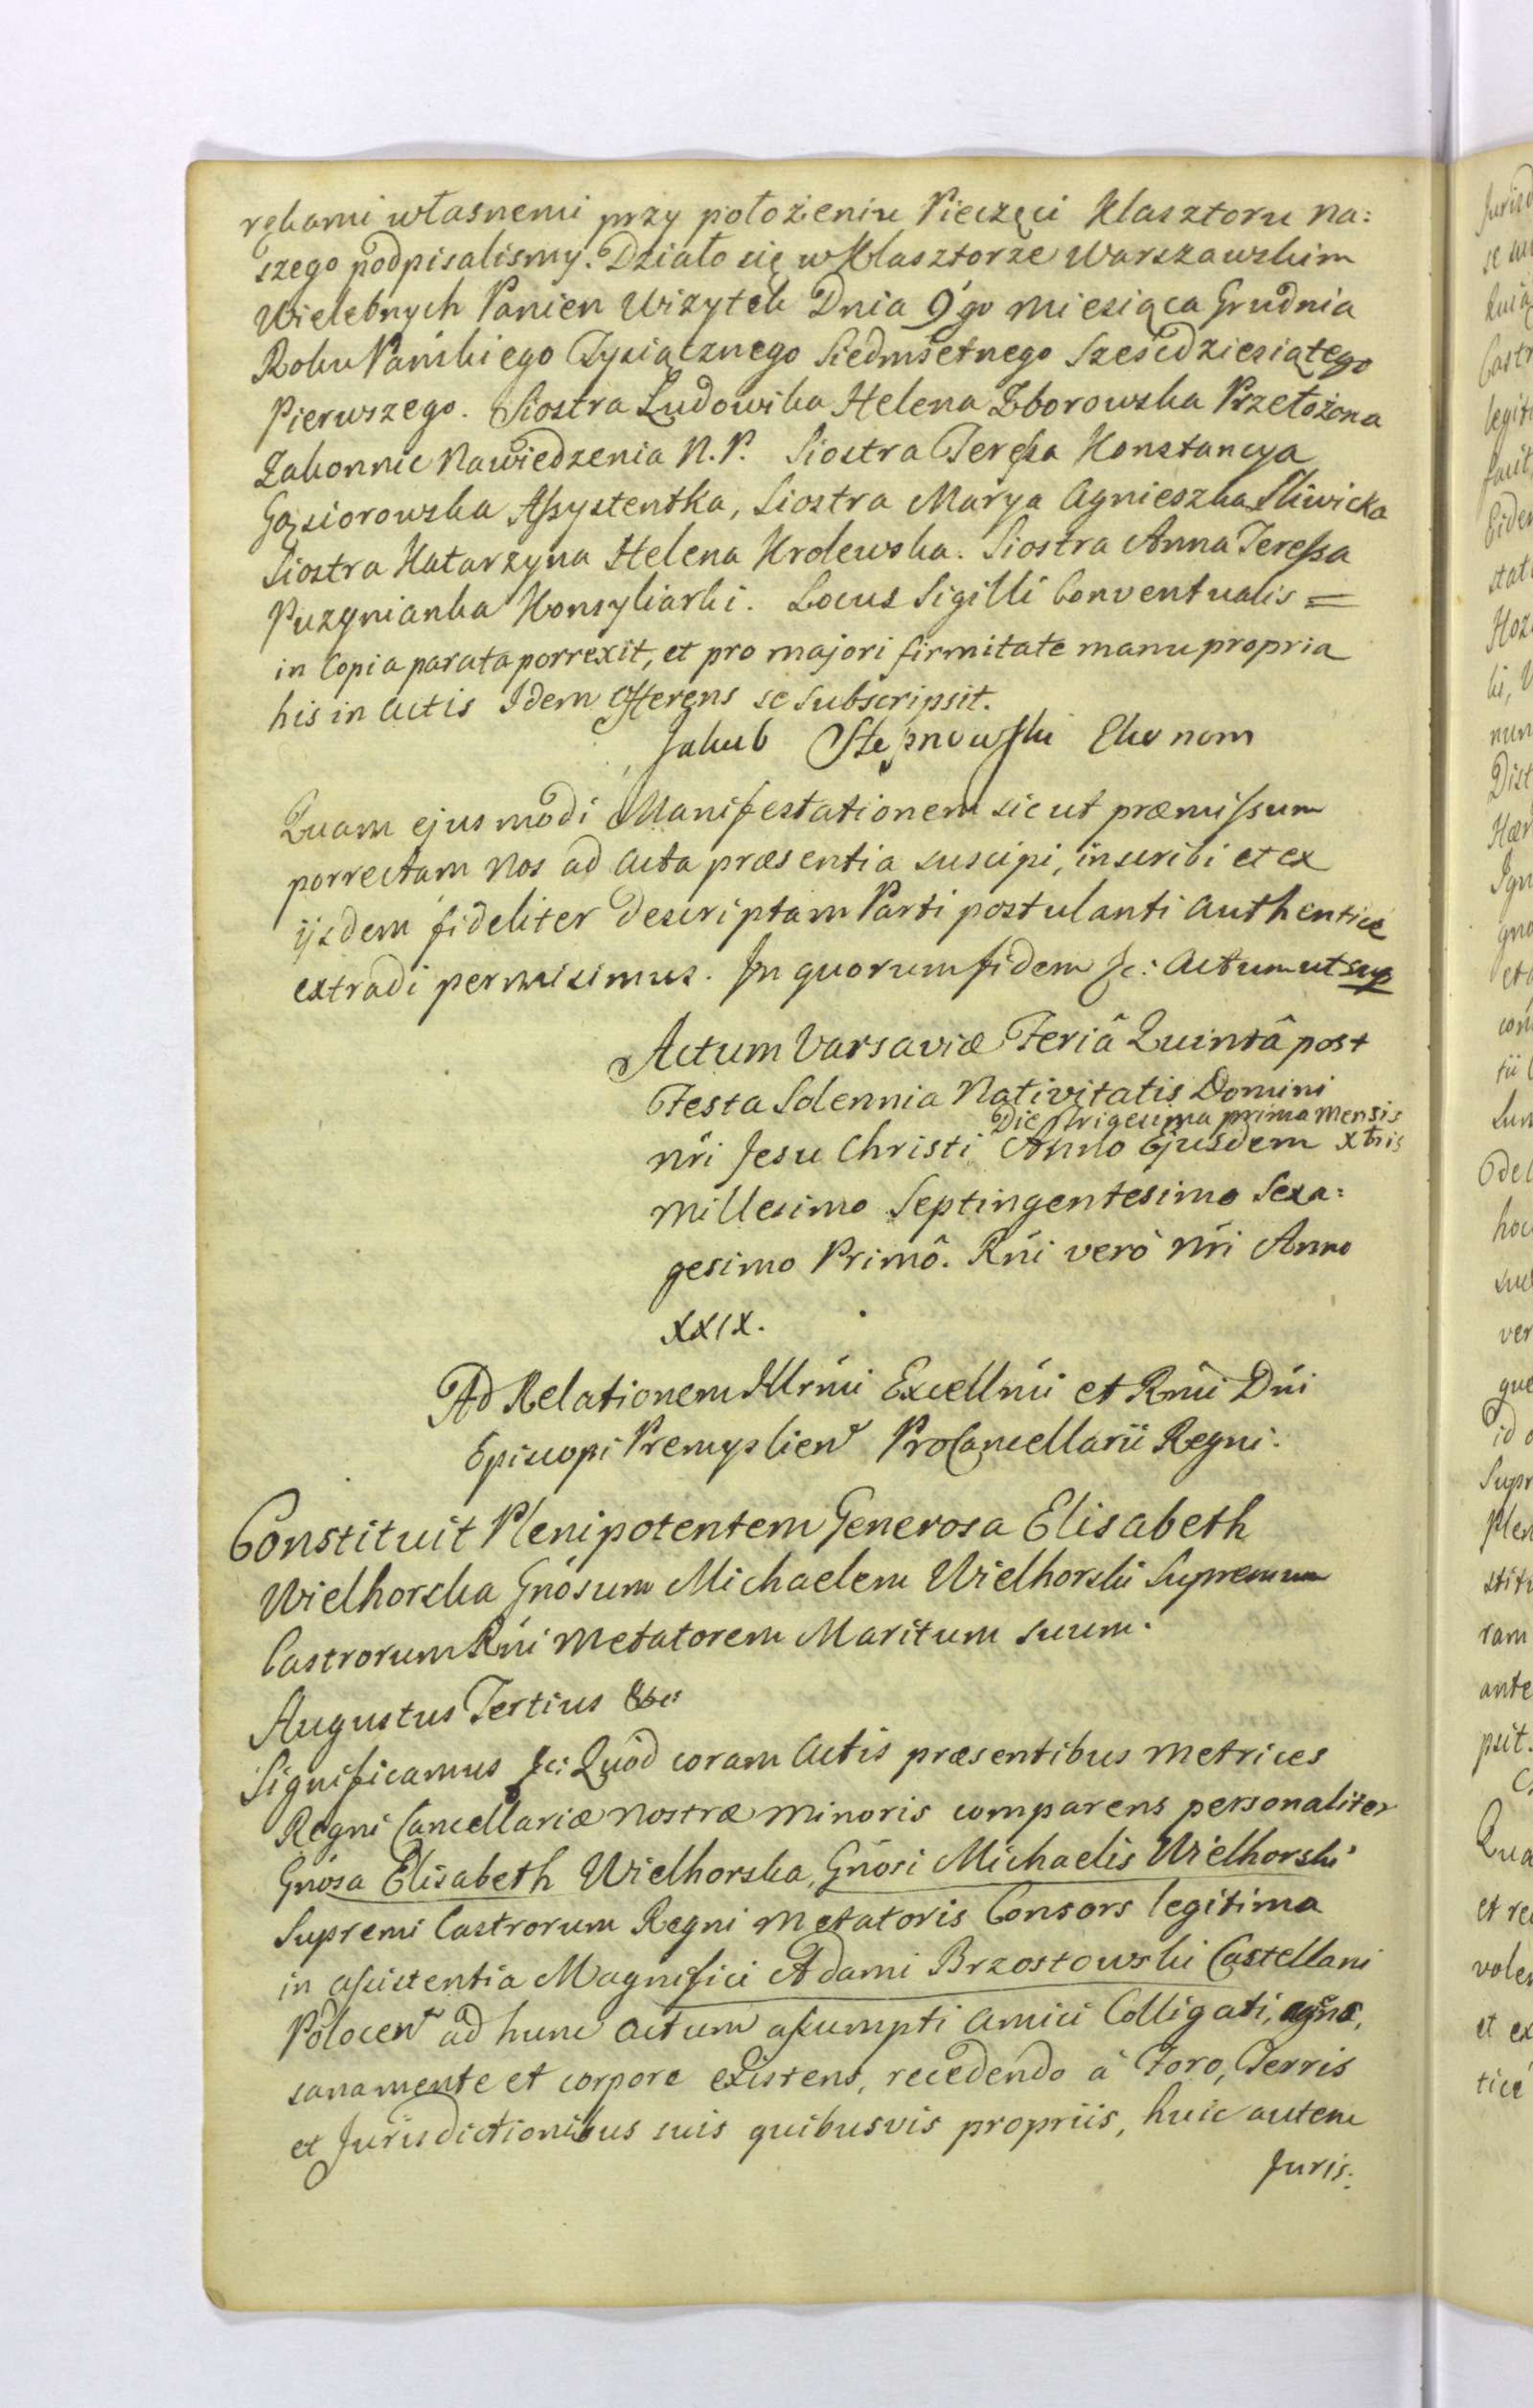 rękami własnemi przy położeniu Pieczęci Klasztoru na:
szego podpisalismy. Działo się w Klasztorze Warszawskim
Wielebnych Panien Wizytek Dnia 9go Miesiąca Grudnia
Roku Pańskiego Tysiącznego Siedmsetnego Sześćdziesiątego
Pierwszego. Siostra Ludowika Helena Zborowska Przełożona
Zakonnic Nawiedzenia N. P. Siostra Teressa Konstancya
Gąsiorowska Assystentka, Siostra Marya Agnieszka Sliwicka
Siostra Katarzyna Helena Krolewska. Siostra Anna Teressa
Puzynianka Konsyliarki. Locus Sigilli Conventualis =
in Copia parata porrexit, et pro majori firmitate manu propria
his in Actis Idem Offerens se subscripsit.
Jakub Stępnowski Ekonom
Quam ejusmodi Manifestationem sic ut præmissum
porrectam Nos ad Acta præsentia suscipi, inscribi et ex
ijsdem fideliter descriptam Parti postulanti Authentice
extradi permisimus. In quorum fidem &c: Actum ut sup
Actum Varsaviæ Feriâ Quintâ post
Festa Solennia Nativitatis Domini
Die Trigesima prima Mensis
Nri Jesu Christi Anno Ejusdem Xbris
Millesimo Septingentesimo Sexa:
gesimo Primô. Rńi verò Nri Anno
XXIX.
Ad Relationem Illrmi Excellmi et Rmi Dńi
Episcopi Premyslien Procancellarii Regni.
Constituit Plenipotentem Generosa Elisabeth
Wielhorska Gnosum Michaelem Wielhorski Supremum
Castrorum Rńi Metatorem Maritum suum.
Augustus Tertius &c:
Significamus &c: Quod coram Actis præsentibus Metrices
Regni Cancellariæ Nostræ Minoris comparens personaliter
Gnosa Elisabeth Wielhorska, Gnosi Michaelis Wielhorski
Supremi Castrorum Regni Metatoris Consors legitima
in assistentia Magnifici Adami Brzostowski Castellani
Polocen ad hunc actum assumpti Amici Colligati,
sana mente et corpore existens, recedendo à Foro, Terris
et Jurisdictionibus suis quibusvis propriis, huic autem
Juris: